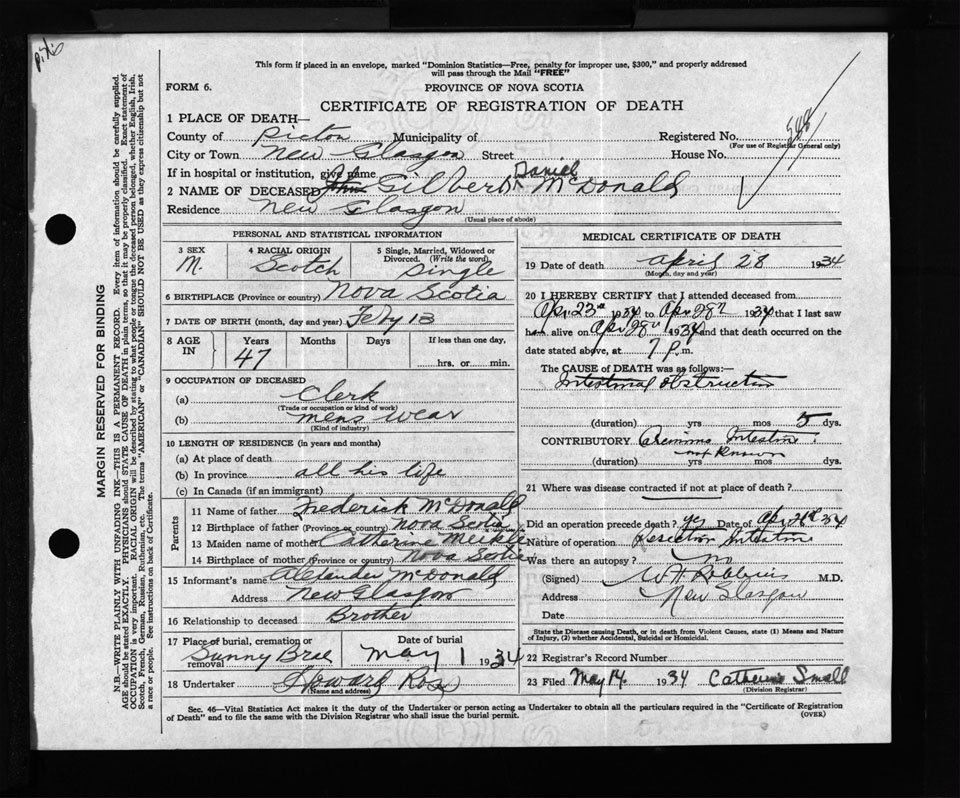 This form if placed in an envelope, marked "Dominion Statistics—Free, penalty for improper use, $300," and properly addressed
will pass through the Mail "FREE"
FORM 6.
PROVINCE OF NOVA SCOTIA
CERTIFICATE OF REGISTRATION OF DEATH
1 PLACE OF DEATH—
County of Pictou Municipality of
Registered No.
(For use of Registrar General only)
City or Town New Glasgow Street House No.
If in hospital or institution, give name
2 NAME OF DECEASED John Gilbert Daniel McDonald
Residence New Glasgow
(Usual place of abode)
PERSONAL AND STATISTICAL INFORMATION
3 SEX M.
4 RACIAL ORIGIN Scotch
5 Single, Married, Widowed or Divorced. (Write the word) Single
6 BIRTHPLACE (Province or country) Nova Scotia
7 DATE OF BIRTH (month, day and year) Feby 13
8 AGE IN Years Months Days If less than one day,
47 hrs. or min.
9 OCCUPATION OF DECEASED
(a) Clerk
(Trade or occupation or kind of work)
(b) mens wear
(Kind of industry)
10 LENGTH OF RESIDENCE (in years and months)
(a) At place of death
(b) In province all his life
(c) In Canada (if an immigrant)
Parents
11 Name of father Frederick McDonald
12 Birthplace of father (Province or country) Nova Scotia
13 Maiden name of mother Catherine Meikle
14 Birthplace of mother (Province or country) Nova Scotia
15 Informant's name Alexander McDonald
Address New Glasgow
16 Relationship to deceased Brother
17 Place of burial, cremation or removal Sunny Brae
Date of burial May 1 1934
18 Undertaker Howard Ross
(Name and address)
MEDICAL CERTIFICATE OF DEATH
19 Date of death April 28 1934
(Month, day and year)
20 I HEREBY CERTIFY that I attended deceased from
Apr 23 1934 to Apr 28 1934 that I last saw
h alive on Apr 28 1934 and that death occurred on the
date stated above, at 7 p.m.
The CAUSE of DEATH was as follows:—
Intestinal obstruction
(duration) yrs mos 5 dys.
CONTRIBUTORY Intestine
(duration) not known yrs mos dys.
21 Where was disease contracted if not at place of death?
Did an operation precede death? yes Date of Apr 34
Nature of operation Resection Intestine
Was there an autopsy? no
(Signed) W H Robbins M.D.
Address New Glasgow
Date
State the Disease causing Death, or in death from Violent Causes, state (1) Means and Nature
of Injury, (2) whether Accidental, Suicidal or Homicidal.
22 Registrar's Record Number
23 Filed May 14 1934 Catherine Small
(Division Registrar)
Sec. 46—Vital Statistics Act makes it the duty of the Undertaker or person acting as Undertaker to obtain all the particulars required in the "Certificate of Registration
of Death" and to file the same with the Division Registrar who shall issue the burial permit.
(OVER)
MARGIN RESERVED FOR BINDING
N.B.—WRITE PLAINLY WITH UNFADING INK—THIS IS A PERMANENT RECORD. Every item of information should be carefully supplied.
AGE should be stated EXACTLY. PHYSICIANS should STATE CAUSE OF DEATH in plain terms, so that it may be properly classified. Exact statement of
OCCUPATION is very important. RACIAL ORIGIN will be described by stating to what people or tongue the deceased person belonged, whether English, Irish,
Scotch, French, German, Russian, Ruthenian, etc. The terms "AMERICAN" or "CANADIAN" SHOULD NOT BE USED as they express citizenship but not
a race or people. See instructions on back of Certificate.